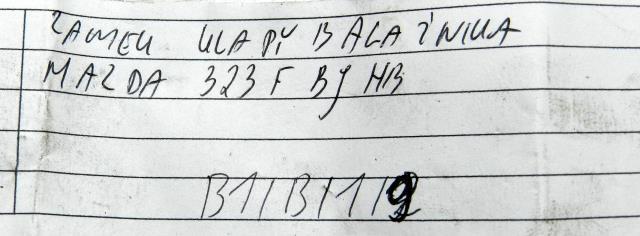 ZAMEK KLAPY BAGAŻNIKA
MAZDA 323F BJ HB
B1/B/1/9